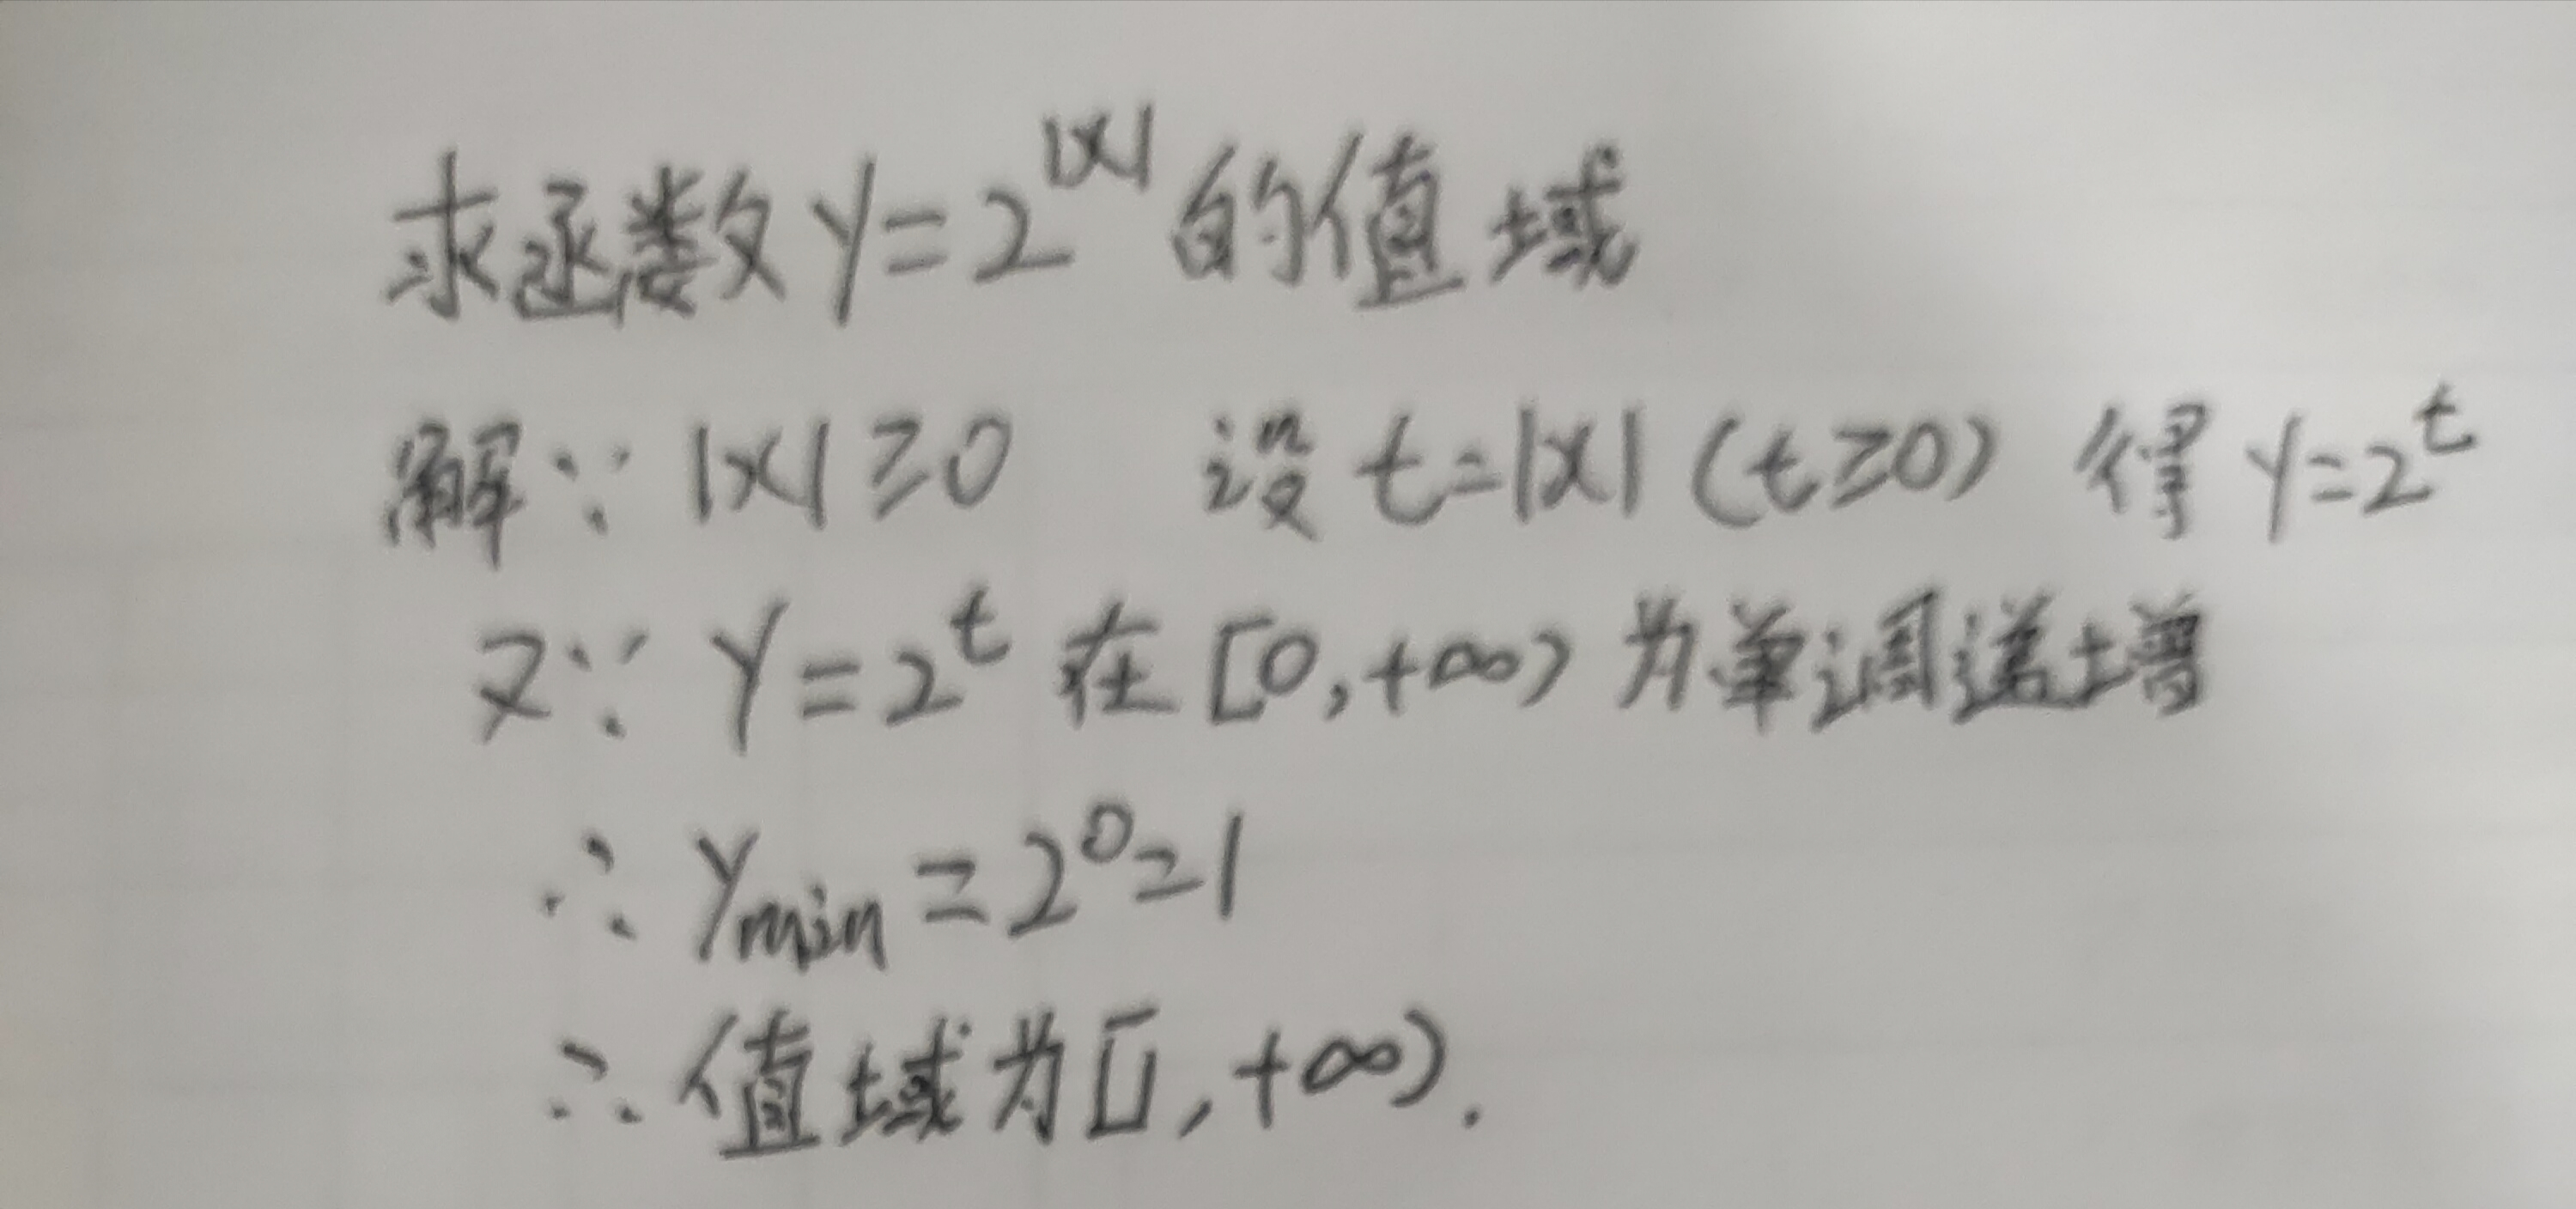 求函数y=2^|x|的值域
解∵|x|≥0 设t=|x|(t≥0)得y=2^t
又∵y=2^t在[0,+∞)为单调递增
∴y_min=2^0=1
∴值域为[1,+∞).